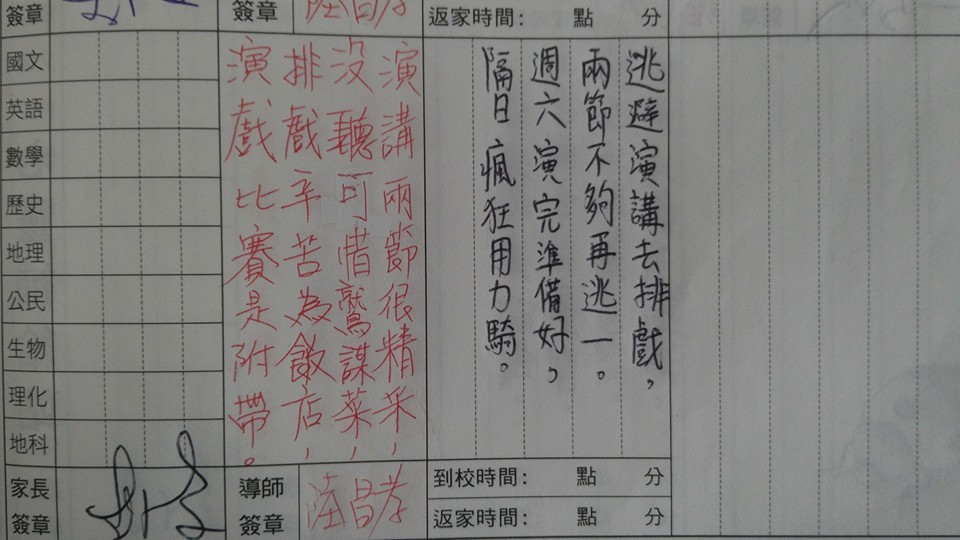 簽章
簽章
陸昌孝
返家時間： 點 分
國文
英語
數學
歷史
地理
公民
生物
理化
地科
演講兩節很精采，
沒聽可惜鷲謀菜，
排戲辛苦為飯店，
演戲比賽是附帶。
逃避演講去排戲，
兩節不夠再逃一。
週六演完準備好，
隔日瘋狂用力騎。
家長
簽章
導師
簽章
陸昌孝
到校時間： 點 分
返家時間： 點 分